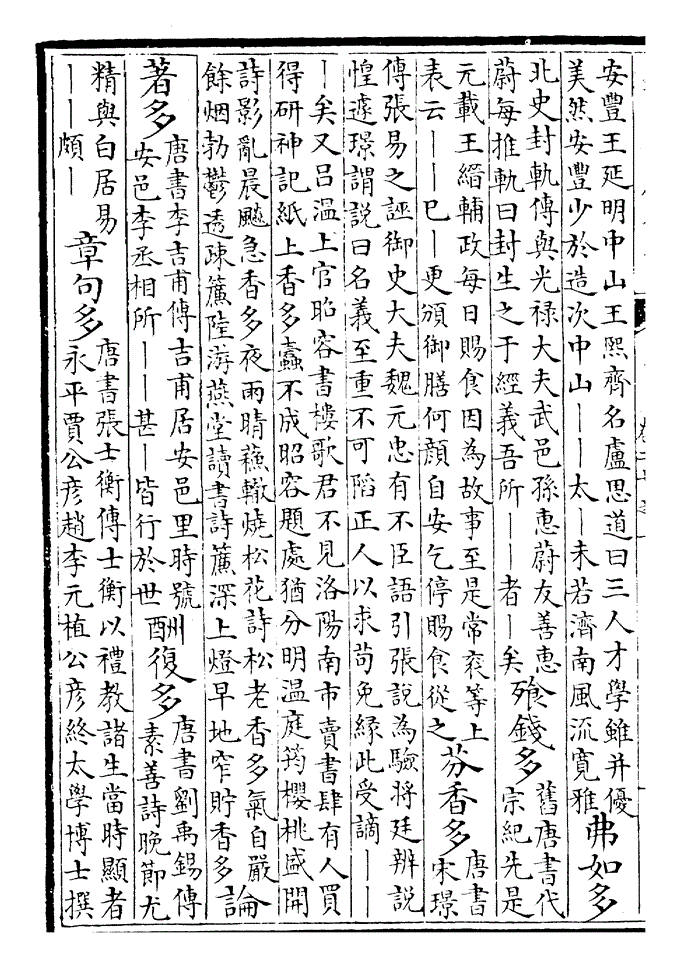 安豐王延明中山王熙齊名盧思道曰三人才學雖并優
美然安豐少於造次中山｜｜太｜未若濟南風流寛雅
弗如多
北史封軌傳與光禄大夫武邑孫惠蔚友善惠
蔚每推軌曰封生之于經義吾所｜｜者｜矣
飱錢多
舊唐書代
宗紀先是
元載王縉輔政每日賜食因為故事至是常衮等上
表云｜｜｜巳｜更頒御膳何顔自安乞停賜食從之
芬香多
唐書
宋璟
傳張易之誣御史大夫魏元忠有不臣語引張説為驗將廷辨説
惶遽璟謂説曰名義至重不可陷正人以求苟免縁此受謫｜｜
｜矣又吕温上官昭容書樓歌君不見洛陽南市賣書肆有人買
得研神記紙上香多蠹不成昭容題處猶分明温庭筠櫻桃盛開
詩影亂晨飈急香多夜雨晴蘓轍燒松花詩松老香多氣自嚴
餘烟勃鬱透疎簾陸游燕堂讀書詩簾深上燈早地窄貯香多
論
著多
唐書李吉甫傳吉甫居安邑里時號
安邑李丞相所｜｜甚｜皆行於世
酬復多
唐書劉禹錫傳
素善詩晚節尤
精與白居易
｜｜頗｜
章句多
唐書張士衡傳士衡以禮教諸生當時顯者
永平賈公彦趙李元植公彦終太學博士撰